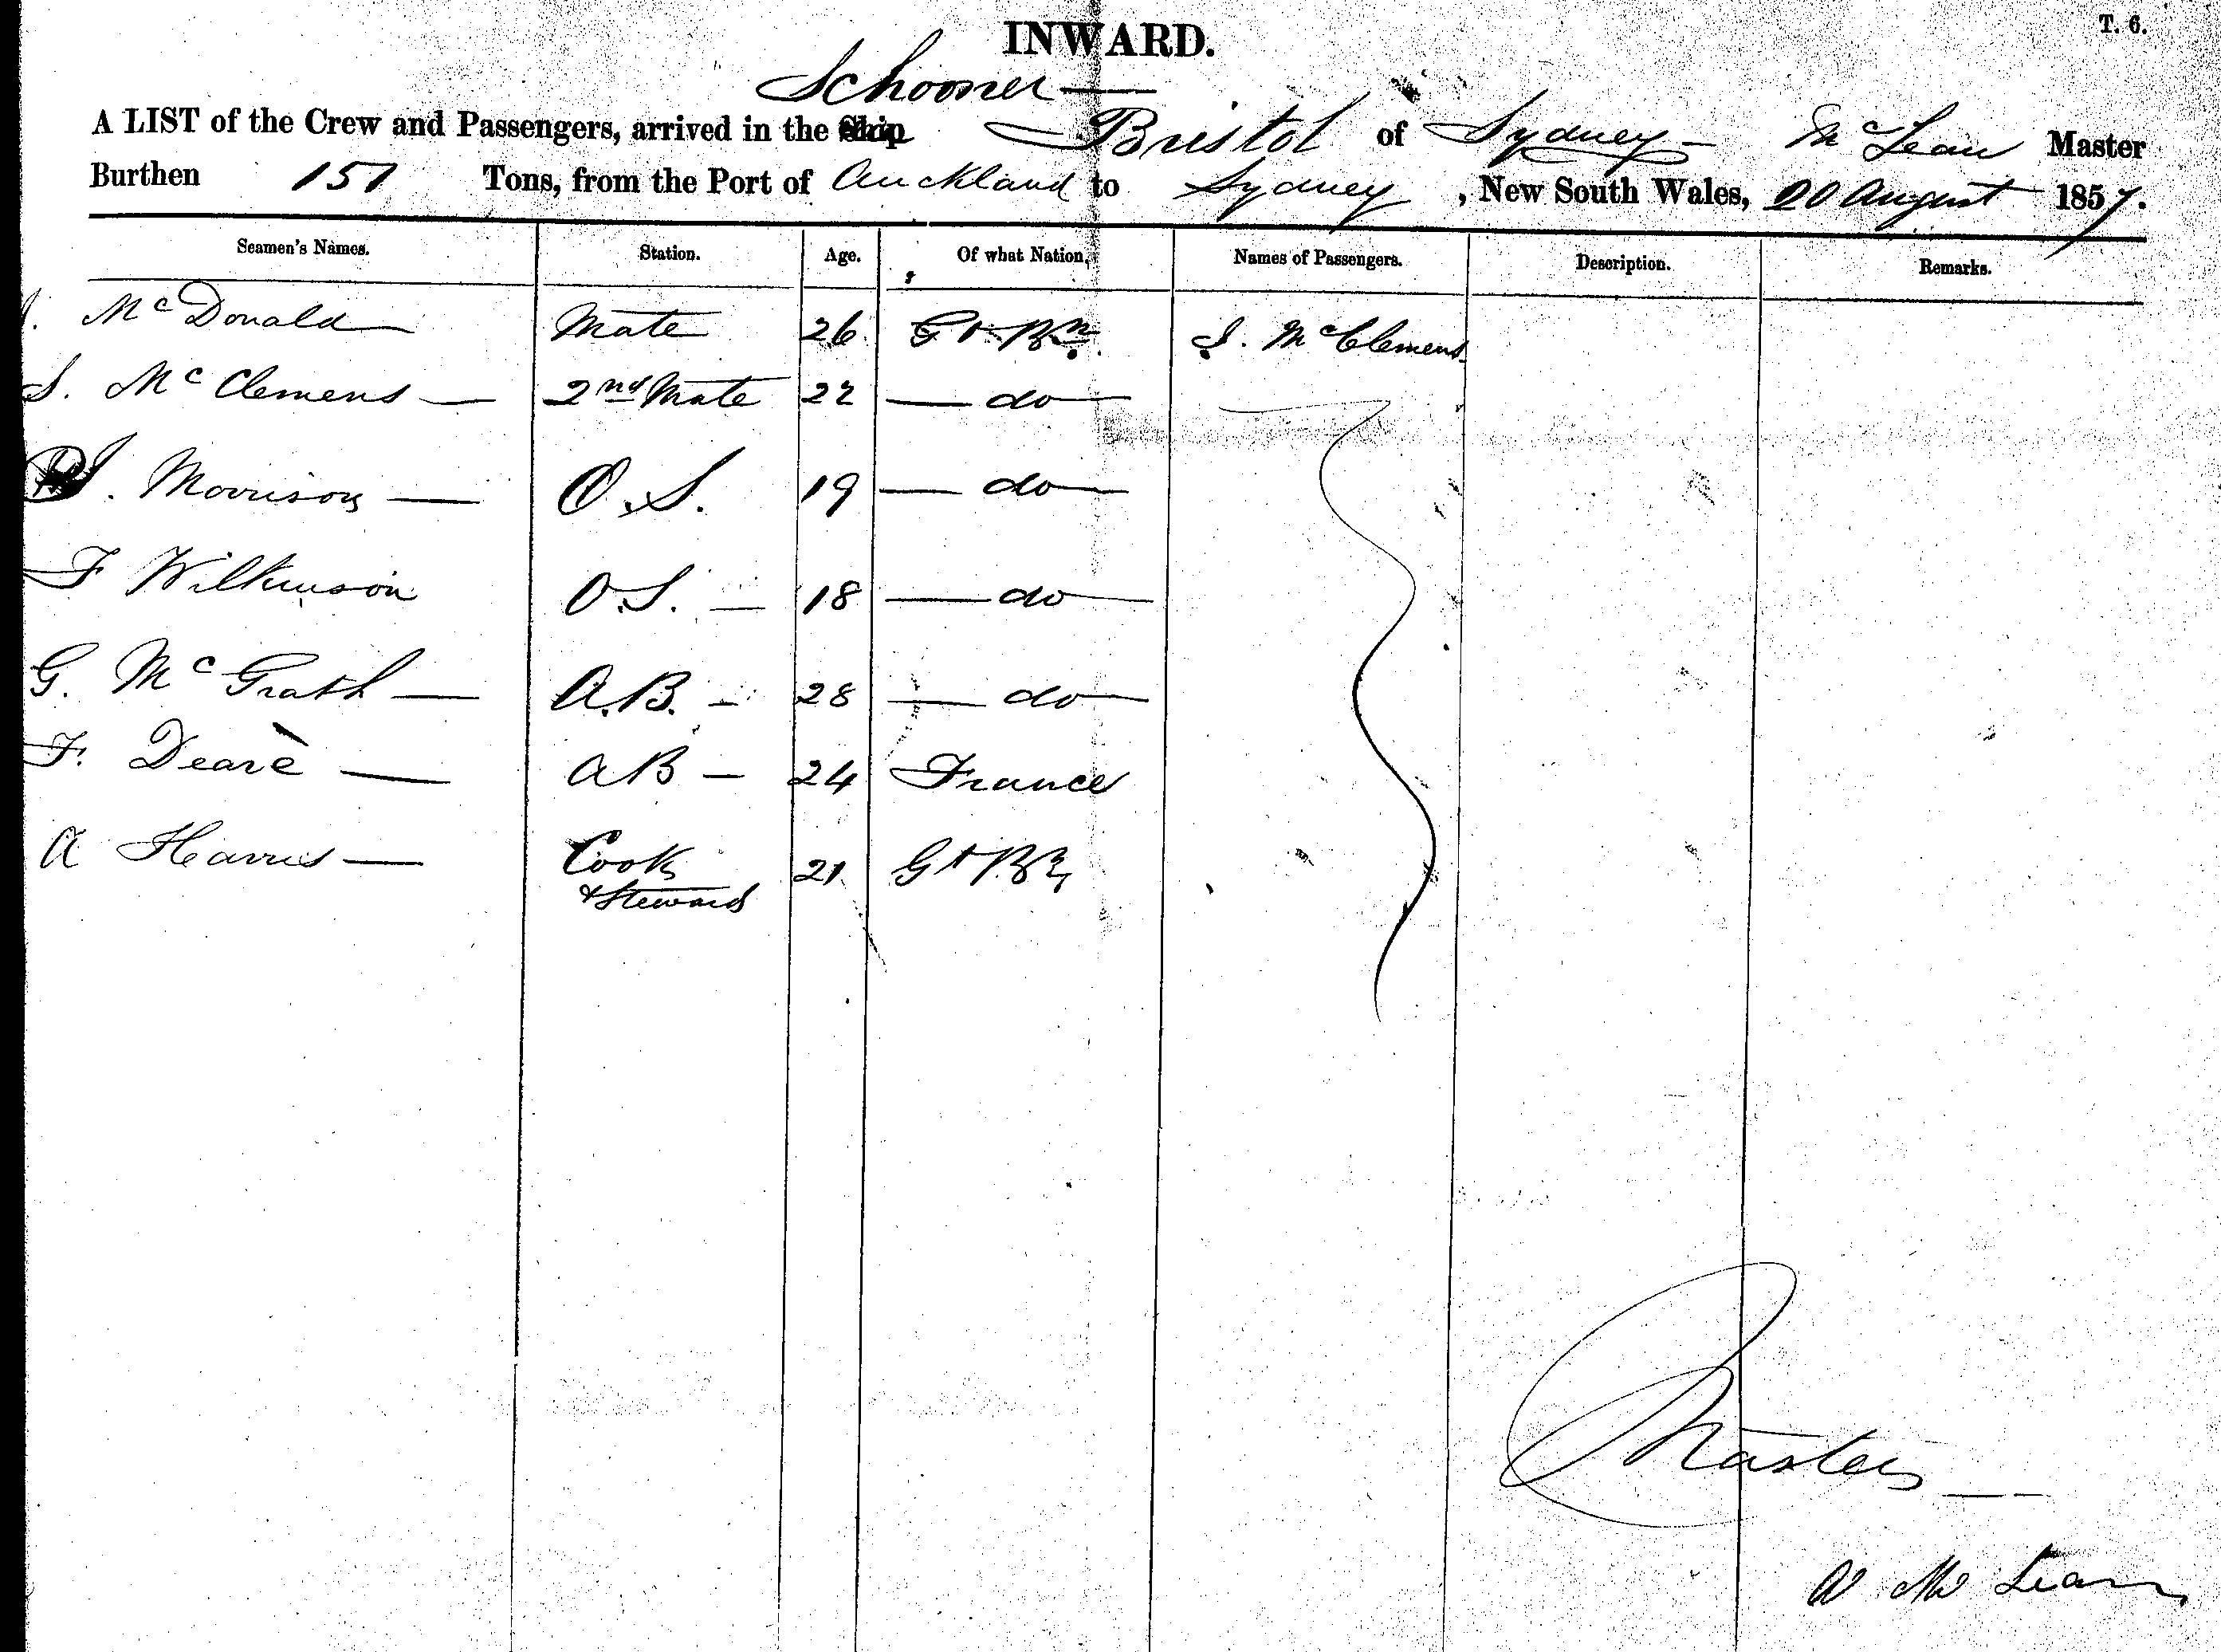 T. 6.
INWARD.
Schooner
A LIST of the Crew and Passengers, arrived in the Ship Bristol of Sydney McLean Master
Burthen 151 Tons, from the Port of Auckland to Sydney, New South Wales, 20 August 1857.
Seamen's Names. Station. Age. Of what Nation. Names of Passengers. Description. Remarks.
McDonald Mate 26 Gt Brn. S. McClemens
S. McClemens 2nd Mate 22 do
J. Morrison O.S. 19 do
F Wilkinson O.S. 18 do
G. McGrath A.B. 28 do
F. Dearè AB 24 France
A Harris Cook 21 Gt Brn
& Steward
Master
A Mc Lean